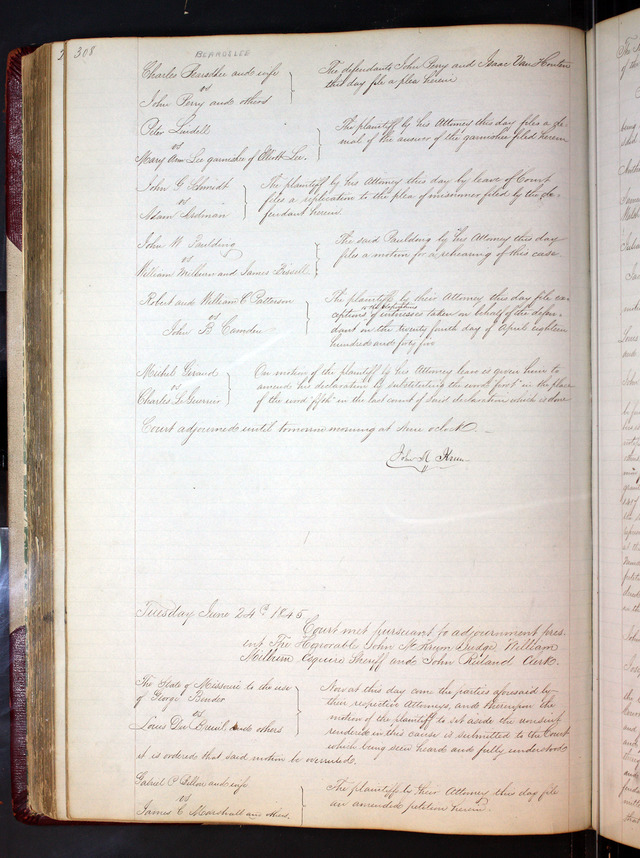 308
BEARDSLEE
Charles Beardslee and wife
vs
John Perry and others
The defendants John Perry and Isaac Van Houten
this day file a plea herein
Peter Lindell
vs
Mary Ann Lee garnishee of Elliott Lee.
The plaintiff by his Attorney this day files a de-
nial of the answer of the garnishee filed herein
John G Schmidt
vs
Adam Lindman
The plaintiff by his Attorney this day by leave of Court
files a replication to the plea of filed by the de-
fendant herein.
John W Paulding
vs
William Milburn and James Bissell
The said Paulding by his Attorney this day
files a motion for a rehearing of this case
Robert and William C Patterson
vs
John B Camden
The plaintiffs by their Attorney this day file ex-
to the depositions
ceptions of witnesses taken on behalf of the defen-
dant on the twenty fourth day of April eighteen
hundred and forty five
Michel Giraud
vs
Charles F. Guerrin
On motion of the plaintiff by his Attorney leave is given him to
amend his declaration by substituting the word "first" in the place
of the word "fifth" in the last count of said declaration which is done
Court adjourned until tomorrow morning at nine oclock.
John M Krum
Tuesday June 24th 1845
Court met pursuant to adjournment pres-
ent The Honorable John M Krum Judge, William
Milburn Esquire Sheriff and John Ruland Clerk.
The State of Missouri to the use
of George Bender
vs
Louis Du Breuil and others
Now at this day come the parties aforesaid by
their respective Attorneys, and thereupon the
motion of the plaintiff to set aside the nonsuit
rendered in this cause is submitted to the Court
which being seen heard and fully understood
it is ordered that said motion be overruled.
Gabriel P Dillon and wife
vs
James C Marshall and others.
The plaintiffs by their Attorney this day file
an amended petition herein.